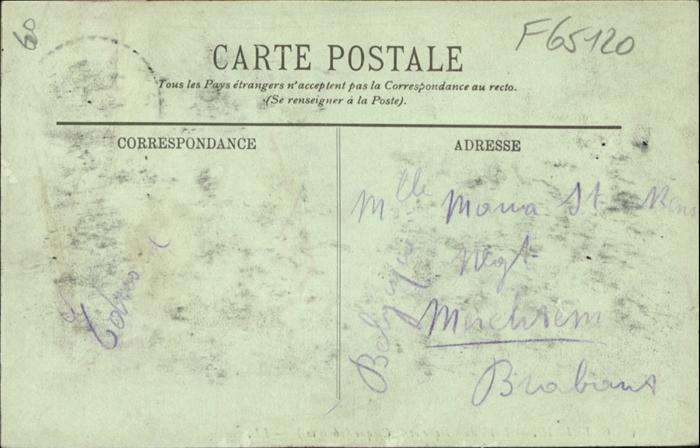 60
F65120
CARTE POSTALE
Tous les Pays étrangers n'acceptent pas la Correspondance au recto.
(Se renseigner à la Poste).
CORRESPONDANCE
ADRESSE
Mlle Maria St
Negt
Brabant